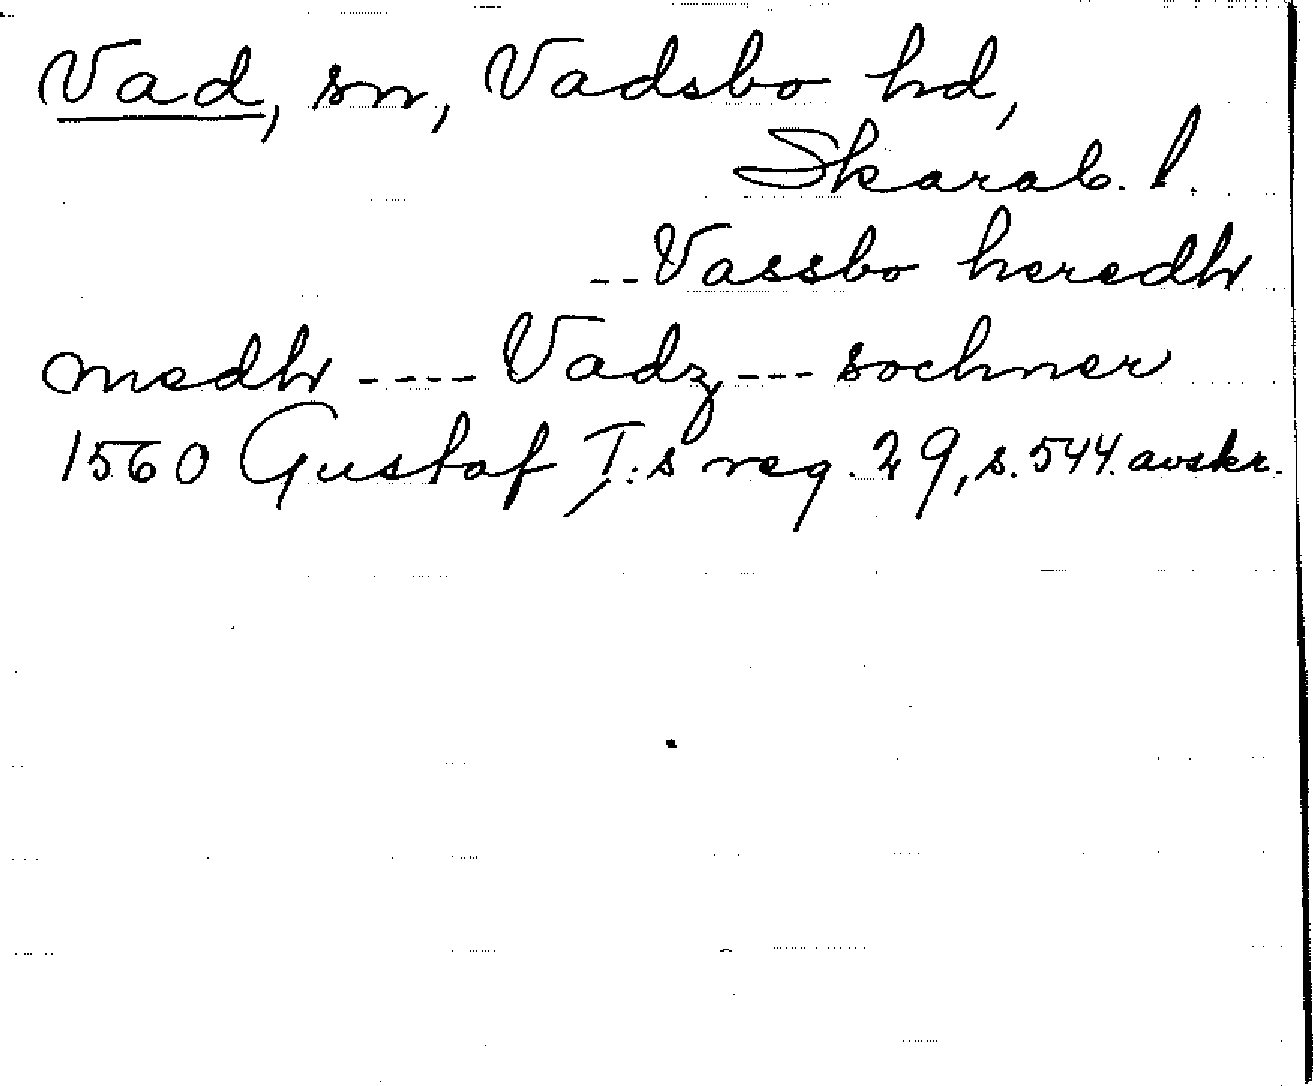 Vad, sn, Vadsbo hd,
Skarab. l.
-- Vassbo heredh
medh ---- Vadz --- sochner
1560 Gustaf I:s reg. 29, s. 544. avskr.